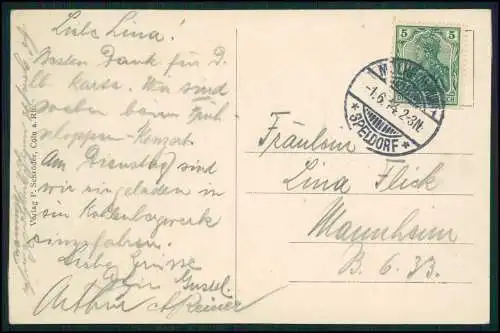 Liebe Lina!
Besten Dank für D.
lb. Karte. Wir sind
soeben beim Früh
schoppen-Konzert.
Am Dienstag sind
wir eingeladen in
ein Kohlenbergwerk
einzufahren.
Liebe Grüsse
Dein Gustel.
Arthur
Verlag P. Schröder, Cöln a. Rh.
5 5
MÜLHEIM
1.6. 2-3N.
* SPELDORF *
Fräulein
Lina Flick
Mannheim
B. 6. 33.